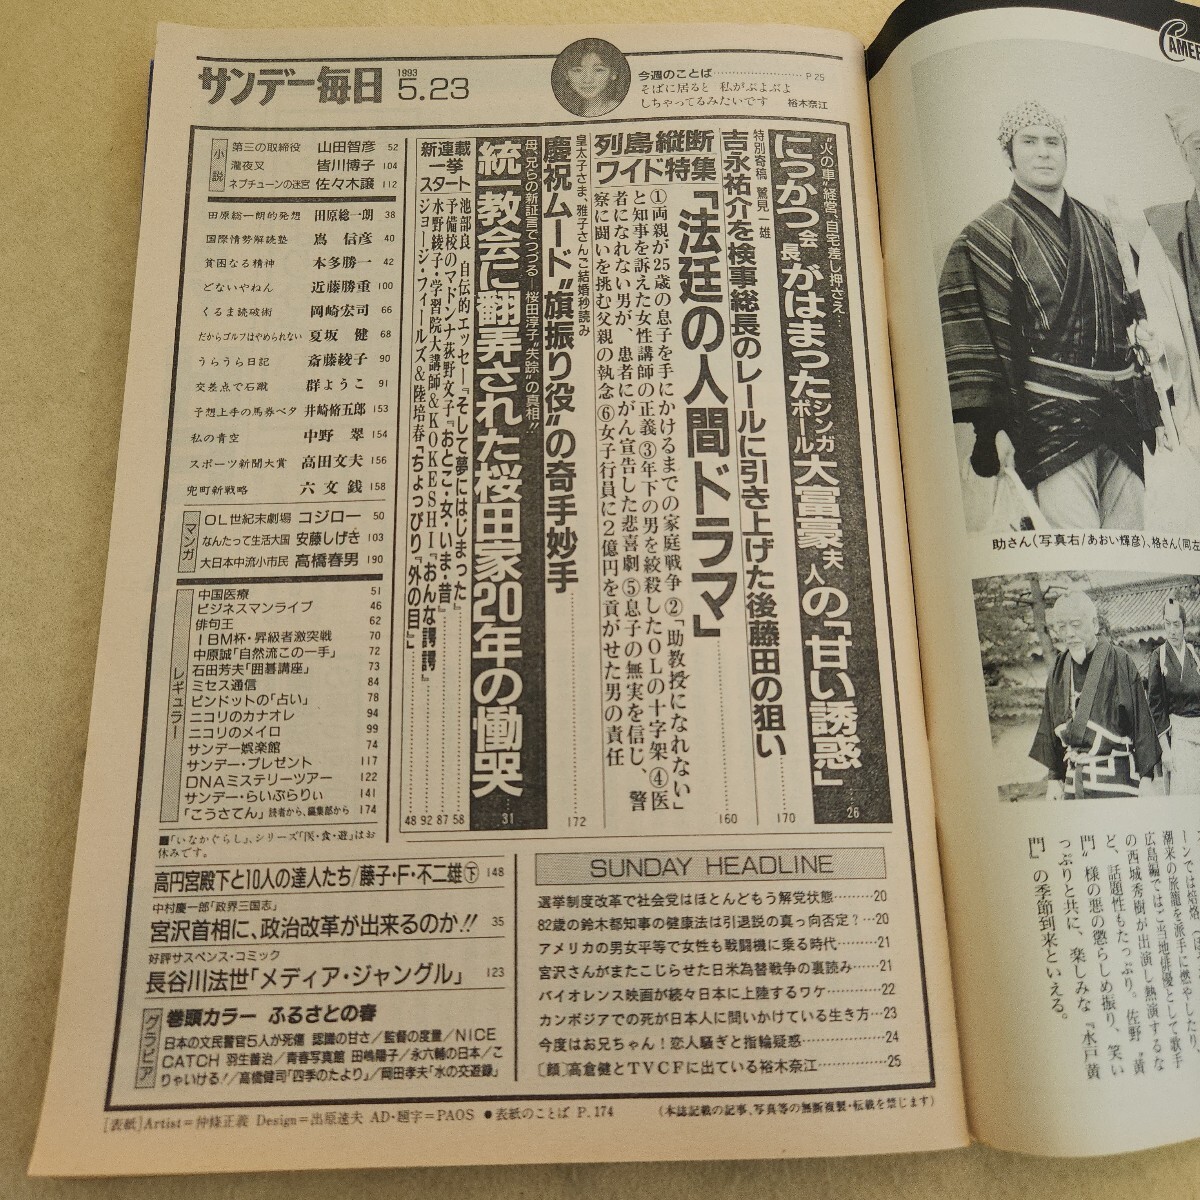 サンデー毎日
1993
5.23
今週のことば……………………P25
そばに居ると 私がぷよぷよ
しちゃってるみたいです 裕木奈江
小説
第三の取締役 山田智彦 52
瀧夜叉 皆川博子 104
ネプチューンの迷宮 佐々木譲 112
田原総一朗的発想 田原総一朗 38
国際情勢解読塾 嶌 信彦 40
貧困なる精神 本多勝一 42
どないやねん 近藤勝重 100
くるま読破術 岡崎宏司 66
だからゴルフはやめられない 夏坂 健 68
うらうら日記 斎藤綾子 90
交差点で石蹴り 群ようこ 91
予想上手の馬券ベタ 井崎脩五郎 153
私の青空 中野 翠 154
スポーツ新聞大賞 高田文夫 156
兜町新戦略 六文銭 158
マンガ
OL世紀末劇場 コジロー 50
なんたって生活大国 安藤しげき 103
大日本中流小市民 高橋春男 190
レギュラー
中国医療 51
ビジネスマンライブ 46
俳句王 62
IBM杯・昇級者激突戦 70
中原誠「自然流この一手」 72
石田芳夫「囲碁講座」 73
ミセス通信 84
ピンドットの「占い」 78
ニコリのカナオレ 94
ニコリのメイロ 99
サンデー娯楽館 74
サンデー・プレゼント 117
DNAミステリーツアー 122
サンデー・らいぶらりぃ 141
「こうさてん」読者から、編集部から 174
■「いなかぐらし」、シリーズ「医・食・遊」はお
休みです。
“火の車”経営、自宅差し押さえ…
にっかつ会長がはまったシンガポール大富豪夫人の「甘い誘惑」 … 26
特別寄稿 鷲見一雄
吉永祐介を検事総長のレールに引き上げた後藤田の狙い …… 170
列島縦断
ワイド特集
「法廷の人間ドラマ」 …… 160
①両親が25歳の息子を手にかけるまでの家庭戦争②「助教授になれない」
と知事を訴えた女性講師の正義③年下の男を絞殺したOLの十字架④医
者になれない男が、患者にがん宣告した悲喜劇⑤息子の無実を信じ、警
察に闘いを挑む父親の執念⑥女子行員に2億円を貢がせた男の責任
皇太子さま、雅子さんご結婚秒読み
慶祝ムード“旗振り役”の奇手妙手 …… 172
母、兄らの新証言でつづる―桜田淳子“失踪”の真相!!
統一教会に翻弄された桜田家20年の慟哭 … 31
新連載
一挙
スタート
池部良 自伝的エッセー『そして夢にはじまった』…… 58
予備校のマドンナ荻野文子『おとこ・女・いま・昔』…… 87
水野綾子・学習院大講師&KOKESHI『おんな諤諤』…… 92
ジョージ・フィールズ&陸培春「ちょっぴり『外の目』」…… 48
高円宮殿下と10人の達人たち/藤子・F・不二雄㊦ 148
中村慶一郎「政界三国志」
宮沢首相に、政治改革が出来るのか!! 35
好評サスペンス・コミック
長谷川法世「メディア・ジャングル」 123
グラビア
巻頭カラー ふるさとの春
日本の文民警官5人が死傷 認識の甘さ/監督の度量/NICE
CATCH 羽生善治/青春写真館 田嶋陽子/永六輔の日本/こ
りゃいける!/高橋健司「四季のたより」/岡田孝夫「水の交遊録」
SUNDAY HEADLINE
選挙制度改革で社会党はほとんどもう解党状態………20
82歳の鈴木都知事の健康法は引退説の真っ向否定?…20
アメリカの男女平等で女性も戦闘機に乗る時代………21
宮沢さんがまたこじらせた日米為替戦争の裏読み……21
バイオレンス映画が続々日本に上陸するワケ…………22
カンボジアでの死が日本人に問いかけている生き方…23
今度はお兄ちゃん!恋人騒ぎと指輪疑惑………………24
〔顔〕高倉健とTVCFに出ている裕木奈江……………25
[表紙]Artist=仲條正義 Design=出原速夫 AD・題字=PAOS ●表紙のことば P.174
(本誌記載の記事、写真等の無断複製・転載を禁じます)
助さん(写真右/あおい輝彦)、格さん(同左
潮来の旅籠を派手に燃やしたり、
広島編ではご当地俳優として歌手
の西城秀樹が出演し熱演するな
ど、話題性もたっぷり。佐野“黄
門”様の悪の懲らしめ振り、笑い
っぷりと共に、楽しみな『水戸黄
門』の季節到来といえる。